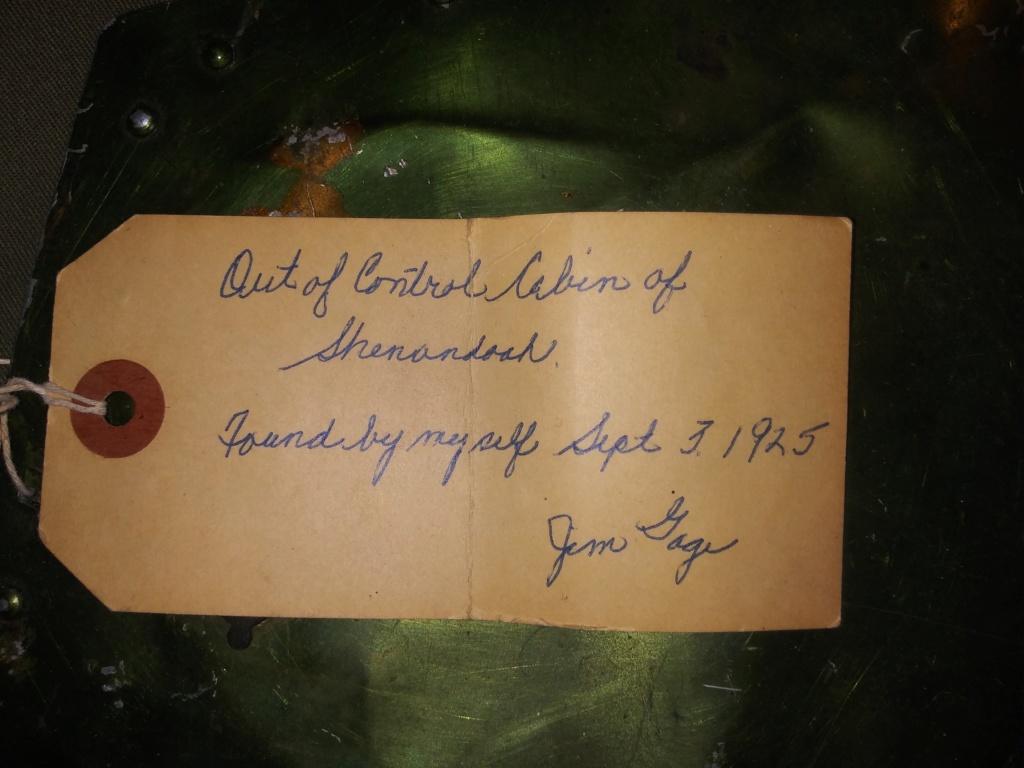 Out of Control Cabin of
Shenandoah.
Found by my self Sept 3. 1925
Jim Gage